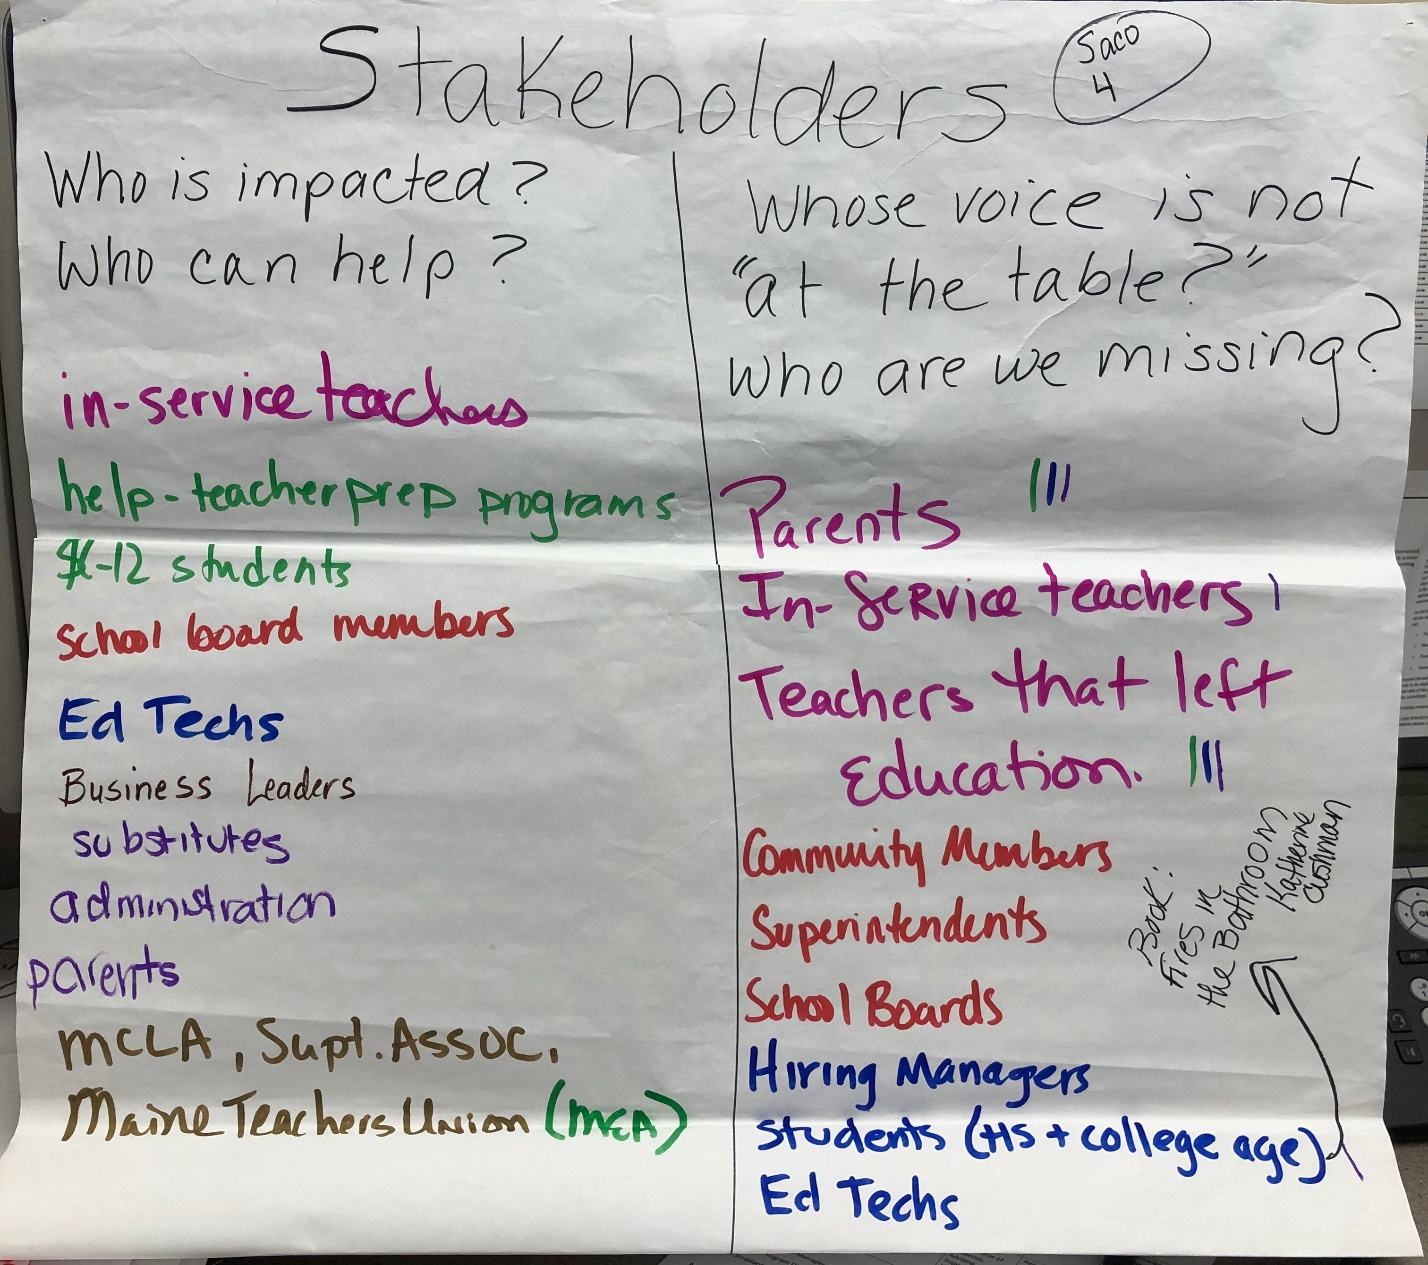 Stakeholders
Saco
4
Who is impacted?
Who can help?
in-service teachers
help-teacher prep programs
K-12 students
school board members
Ed Techs
Business Leaders
substitutes
administration
parents
MCLA, Supt. Assoc.
Maine Teachers Union (MEA)
Whose voice is not
"at the table?"
Who are we missing?
Parents |||
In-Service teachers |
Teachers that left
Education. |||
Community Members
Superintendents
School Boards
Hiring Managers
Students (HS + college age)
Ed Techs
Book:
Fires in
the Bathroom
Katherine
Cushman